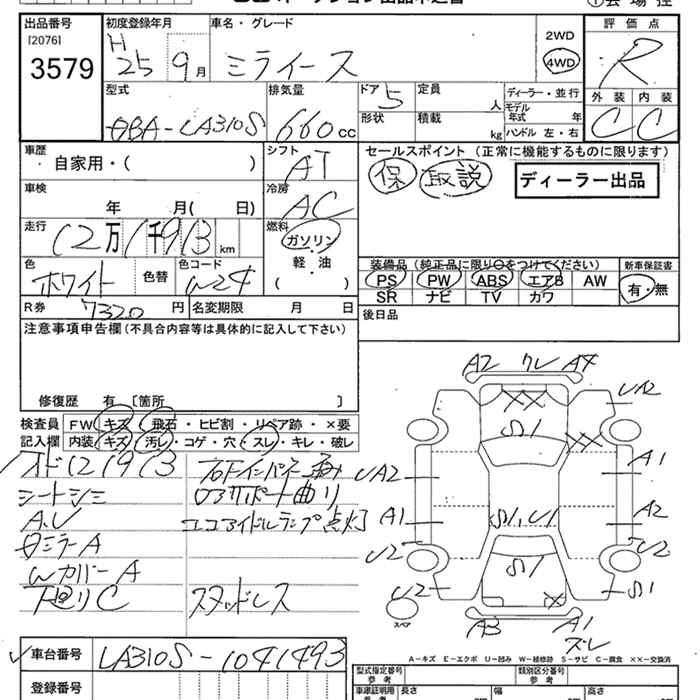 出品番号
[2076]
3579
初度登録年月
H
25 9月
車名・グレード
ミライース
2WD
4WD
評価点
R
型式
DBA-LA310S
排気量
660cc
ドア
5
形状
定員
人
積載
kg
ディーラー・並行
モデル
年式 年
ハンドル 左・右
外装 内装
C C
車歴
自家用・( )
シフト
AT
セールスポイント(正常に機能するものに限ります)
保 取説
ディーラー出品
車検
年 月( 日)
冷房
AC
走行
12万1千913km
燃料
ガソリン
軽・油
( ・ )
色
ホワイト
色替
色コード
W24
装備品(純正品に限り○をつけてください)
PS PW ABS エアB AW
SR ナビ TV カワ
新車保証書
有・無
R券
7320円
名変期限 月 日
後日品
注意事項申告欄(不具合内容等は具体的に記入して下さい)
修復歴 有〔箇所 〕
検査員
記入欄
FW キズ・飛石・ヒビ割・リペア跡・×要
内装・キズ・汚レ・コゲ・穴・スレ・キレ・破レ
シートシミ
A.U
Wカバー A
下廻りC
エコアイドルランプ点灯
スタッドレス
A2 クレ A4
UA2
XX
S1
XX
A1
UA2
A1
S1,U1
A2
U2
U2
S1
U2
S1
スペア
X
A3
A1
ズレ
車台番号
LA310S-1041493
登録番号
A-キズ E-エクボ U-凹み W-補修跡 S-サビ C-腐食 ××-交換済
型式指定番号
参考
類別区分番号
参考
車庫証明用
参考
長さ 幅 高さ